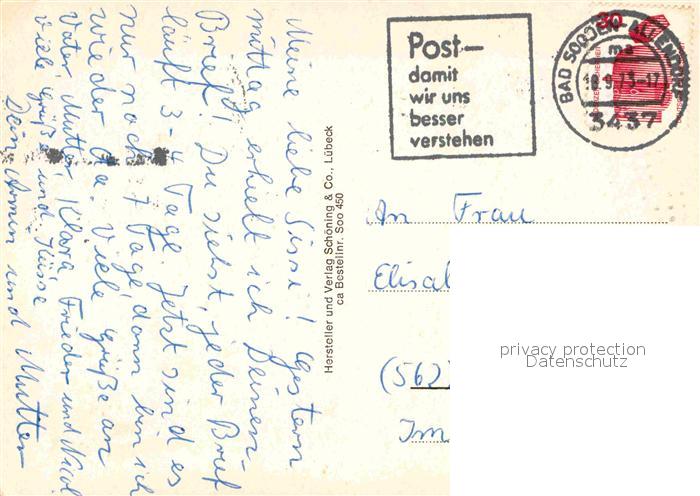 Meine liebe Sissi! Gestern
mittag erhielt ich Deinen
Brief! Du siehst, jeder Brief
läuft 3-4 Tage. Jetzt sind es
nur noch 7 Tage dann bin ich
wieder da. Viele Grüße an
Vater, Mutter, Klara, Frieder und Nicol
viele Grüße und Küsse
Dein Armin und Mutter
Hersteller und Verlag Schöning & Co., Lübeck
ca Bestellnr. Soo 450
Post-
damit
wir uns
besser
verstehen
30
BAD SOODEN-ALLENDORF
ma
18.9.73-17
3437
An Frau
Elisa
(562
Im
privacy protection
Datenschutz